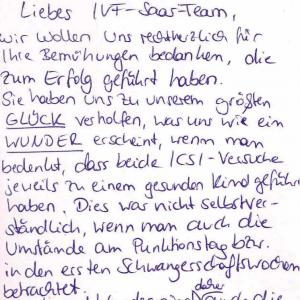 Liebes IVF-Saar-Team,
wir wollen uns rechtherzlich für
Ihre Bemühungen bedanken, die
zum Erfolg geführt haben.
Sie haben uns zu unserem größten
GLÜCK verholfen, was uns wie ein
WUNDER erscheint, wenn man
bedenkt, dass beide ICSI-Versuche
jeweils zu einem gesunden Kind geführt
haben. Dies war nicht selbstver-
ständlich, wenn man auch die
Umstände am Punktionstag bzw.
in den ersten Schwangerschaftswochen
betrachtet.
daher